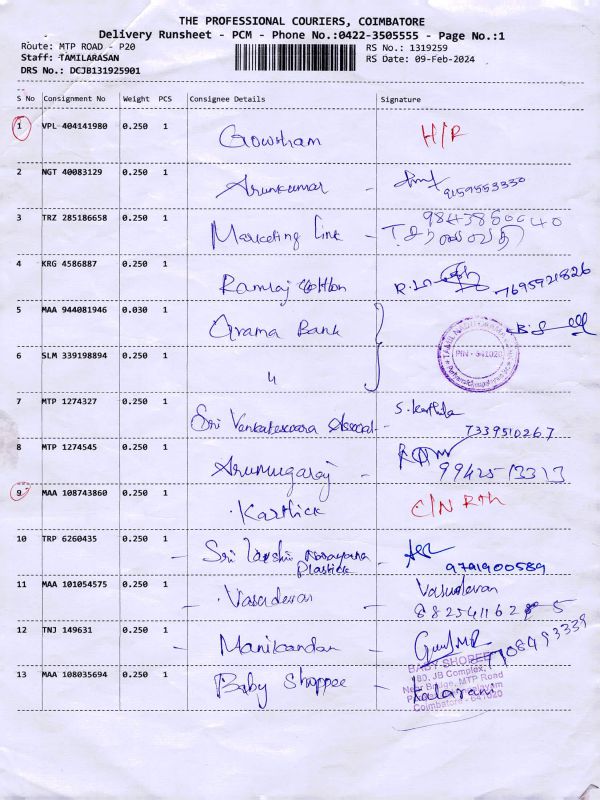 THE PROFESSIONAL COURIERS, COIMBATORE
Delivery Runsheet - PCM - Phone No.:0422-3505555 - Page No.:1
Route: MTP ROAD - P20
RS No.: 1319259
Staff: TAMILARASAN
RS Date: 09-Feb-2024
DRS No.: DCJB131925901
S No Consignment No Weight PCS Consignee Details Signature
1 VPL 404141980 0.250 1 Gowtham H/R
2 NGT 40083129 0.250 1 Arunkumar - 9159553330
3 TRZ 285186658 0.250 1 Marketing Link -
4 KRG 4586887 0.250 1 Ramraj Cotton 7695921826
5 MAA 944081946 0.030 1 Grama Bank
PIN - 641020
6 SLM 339198894 0.250 1 "
7 MTP 1274327 0.250 1 Sri Venkateswara Associat - S. Karthika
7339510267
8 MTP 1274545 0.250 1 Arumugaraj -
9942513313
9 MAA 108743860 0.250 1 Karthick C/N Rth
10 TRP 6260435 0.250 1 - Sri Lakshmi Narayana
Plastick - 9791900589
11 MAA 101054575 0.250 1 - Vasadevan - Vasudevan
12 TNJ 149631 0.250 1 - Manikandan -
13 MAA 108035694 0.250 1 Baby Shoppee - Kalarani
BABY SHOPEE
180, JB Complex,
Near Bridge, MTP Road
Coimbatore - 641020